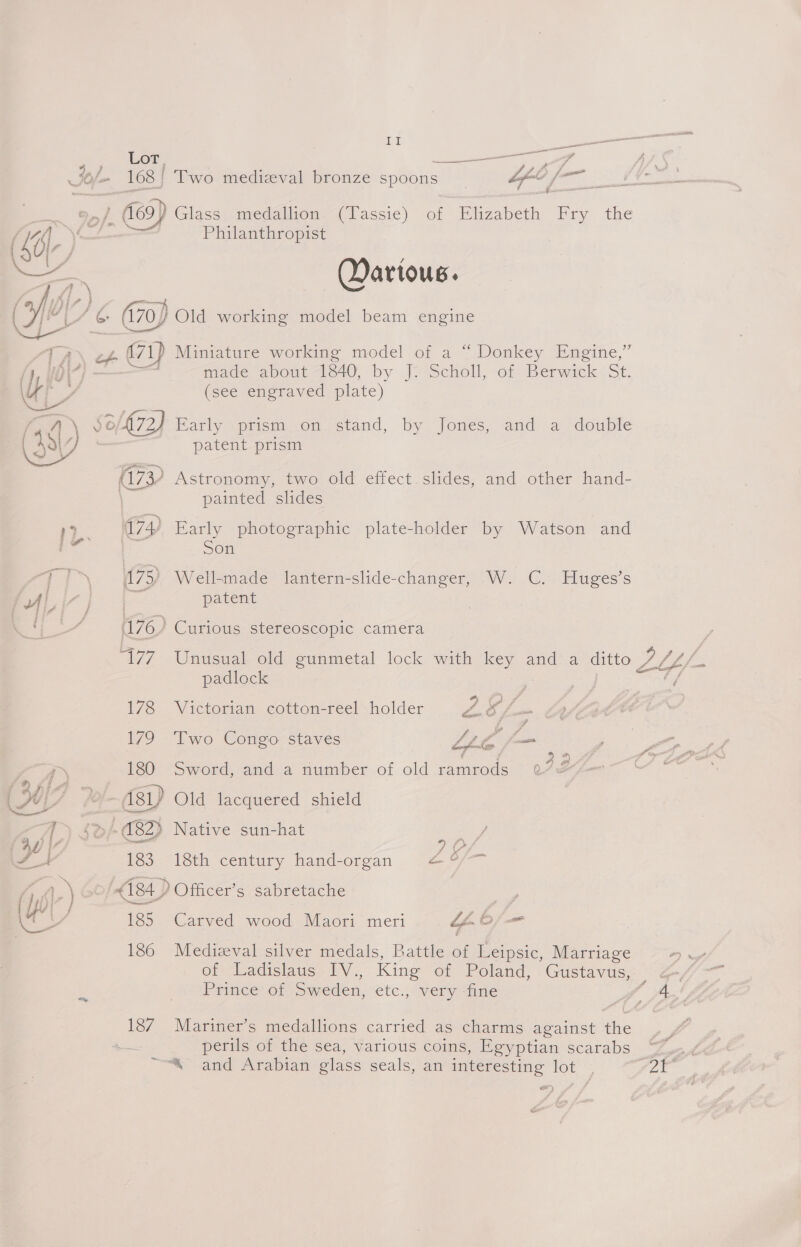 11
LOT
30/- 168 Two mediæval bronze spoons
169 Glass medallion (Tassie) of Elizabeth Fry the
Philanthropist
Various.
170 Old working model beam engine
171 Miniature working model of a “Donkey Engine,”
made about 1840, by J. Scholl, of Berwick St.
(see engraved plate)
172 Early prism on stand, by Jones, and a double
patent prism
173 Astronomy, two old effect slides, and other hand-
painted slides
174 Early photographic plate-holder by Watson and
Son
175 Well-made lantern-slide-changer, W. C. Huges's
patent
176 Curious stereoscopic camera
177 Unusual old gunmetal lock with key and a ditto
padlock
178 Victorian cotton-reel holder
179 Two Congo staves
180 Sword, and a number of old ramrods
181 Old lacquered shield
182 Native sun-hat
183 18th century hand-organ
184 Officer's sabretache
185 Carved wood Maori meri
186 Mediæval silver medals, Battle of Leipsic, Marriage
of Ladislaus IV., King of Poland, Gustavus,
Prince of Sweden, etc., very fine 4
187 Mariner's medallions carried as charms against the
perils of the sea, various coins, Egyptian scarabs
and Arabian glass seals, an interesting lot 21